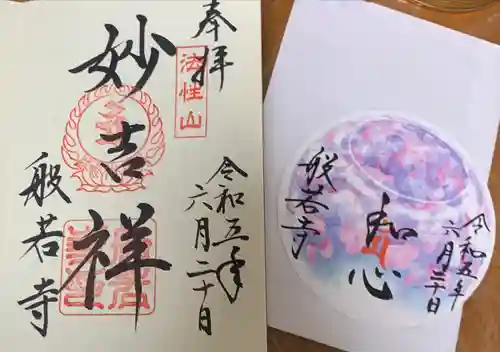 奉拝
法性山
妙吉祥
般若寺
令和五年
六月二十日
般若寺
和心
令和五年
六月二十日